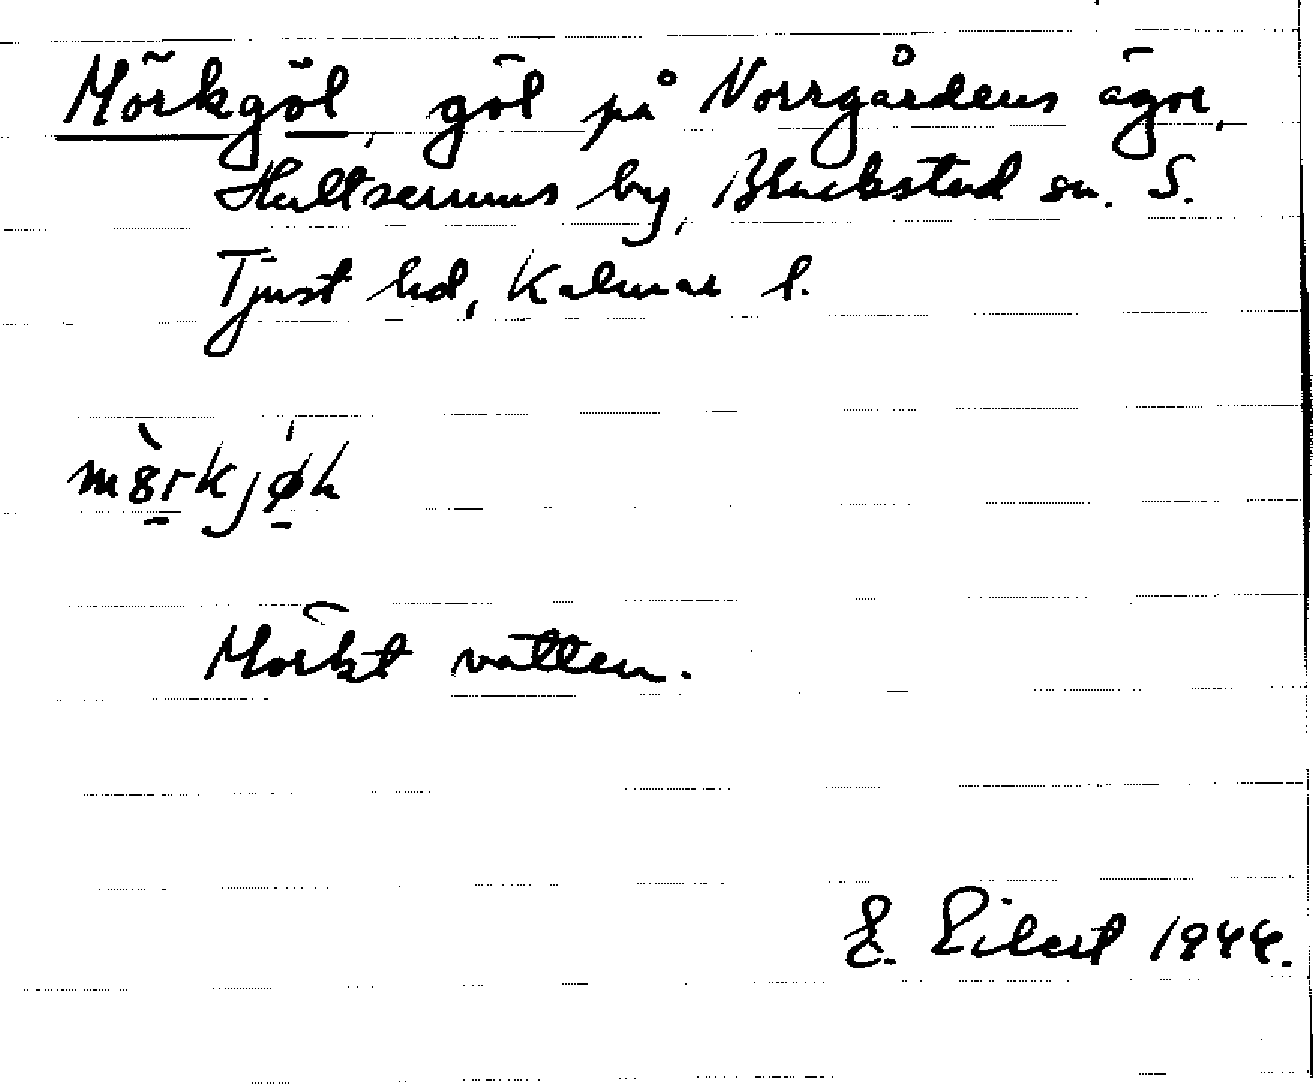 Mörkgöl, göl på Norrgårdens ägor,
Hultserums by, Blackstad sn. S.
Tjust hd, Kalmar l.
Mörkt vatten.
E. Eibert 1944.